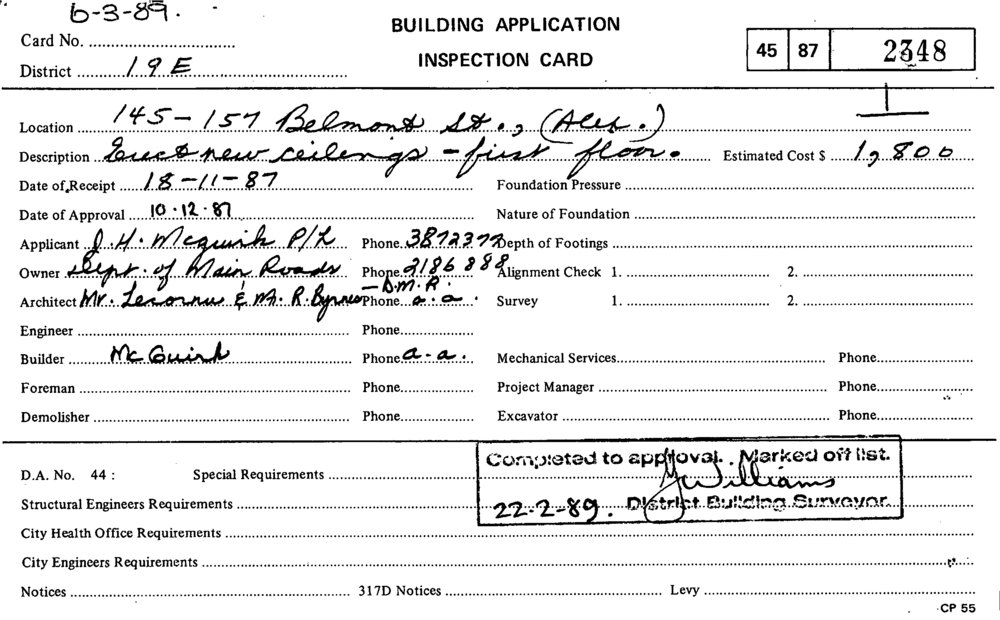 6-3-89.
BUILDING APPLICATION
INSPECTION CARD
Card No.
District 19E
45 87 2348
Location 145-157 Belmont St., (Alex.)
Description Erect new ceilings - first floor. Estimated Cost $ 1,800
Date of Receipt 18-11-87 Foundation Pressure
Date of Approval 10.12.87 Nature of Foundation
Applicant J.H. McGuirk P/L Phone 3872377 Depth of Footings
Owner Dept. of Main Roads Phone 2186888 Alignment Check 1. 2.
Architect Mr. Lecornu & Mr. R. Byrnes - D.M.R. Phone a.a. Survey 1. 2.
Engineer Phone
Builder McGuirk Phone a.a. Mechanical Services Phone
Foreman Phone Project Manager Phone
Demolisher Phone Excavator Phone
Completed to approval. Marked off list.
D.A. No. 44 : Special Requirements
Williams
Structural Engineers Requirements
22-2-89. District Building Surveyor.
City Health Office Requirements
City Engineers Requirements
Notices 317D Notices Levy
CP 55